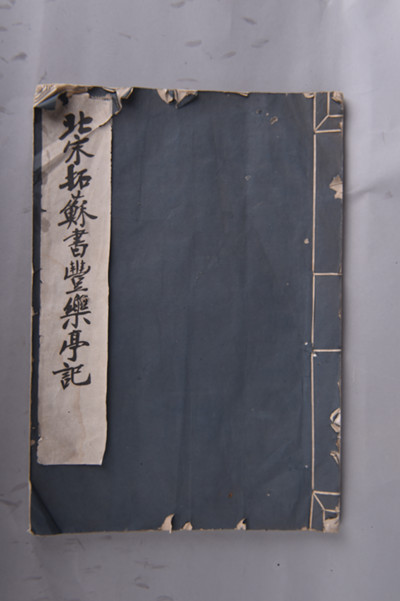 北宋拓蘇書豐樂亭記